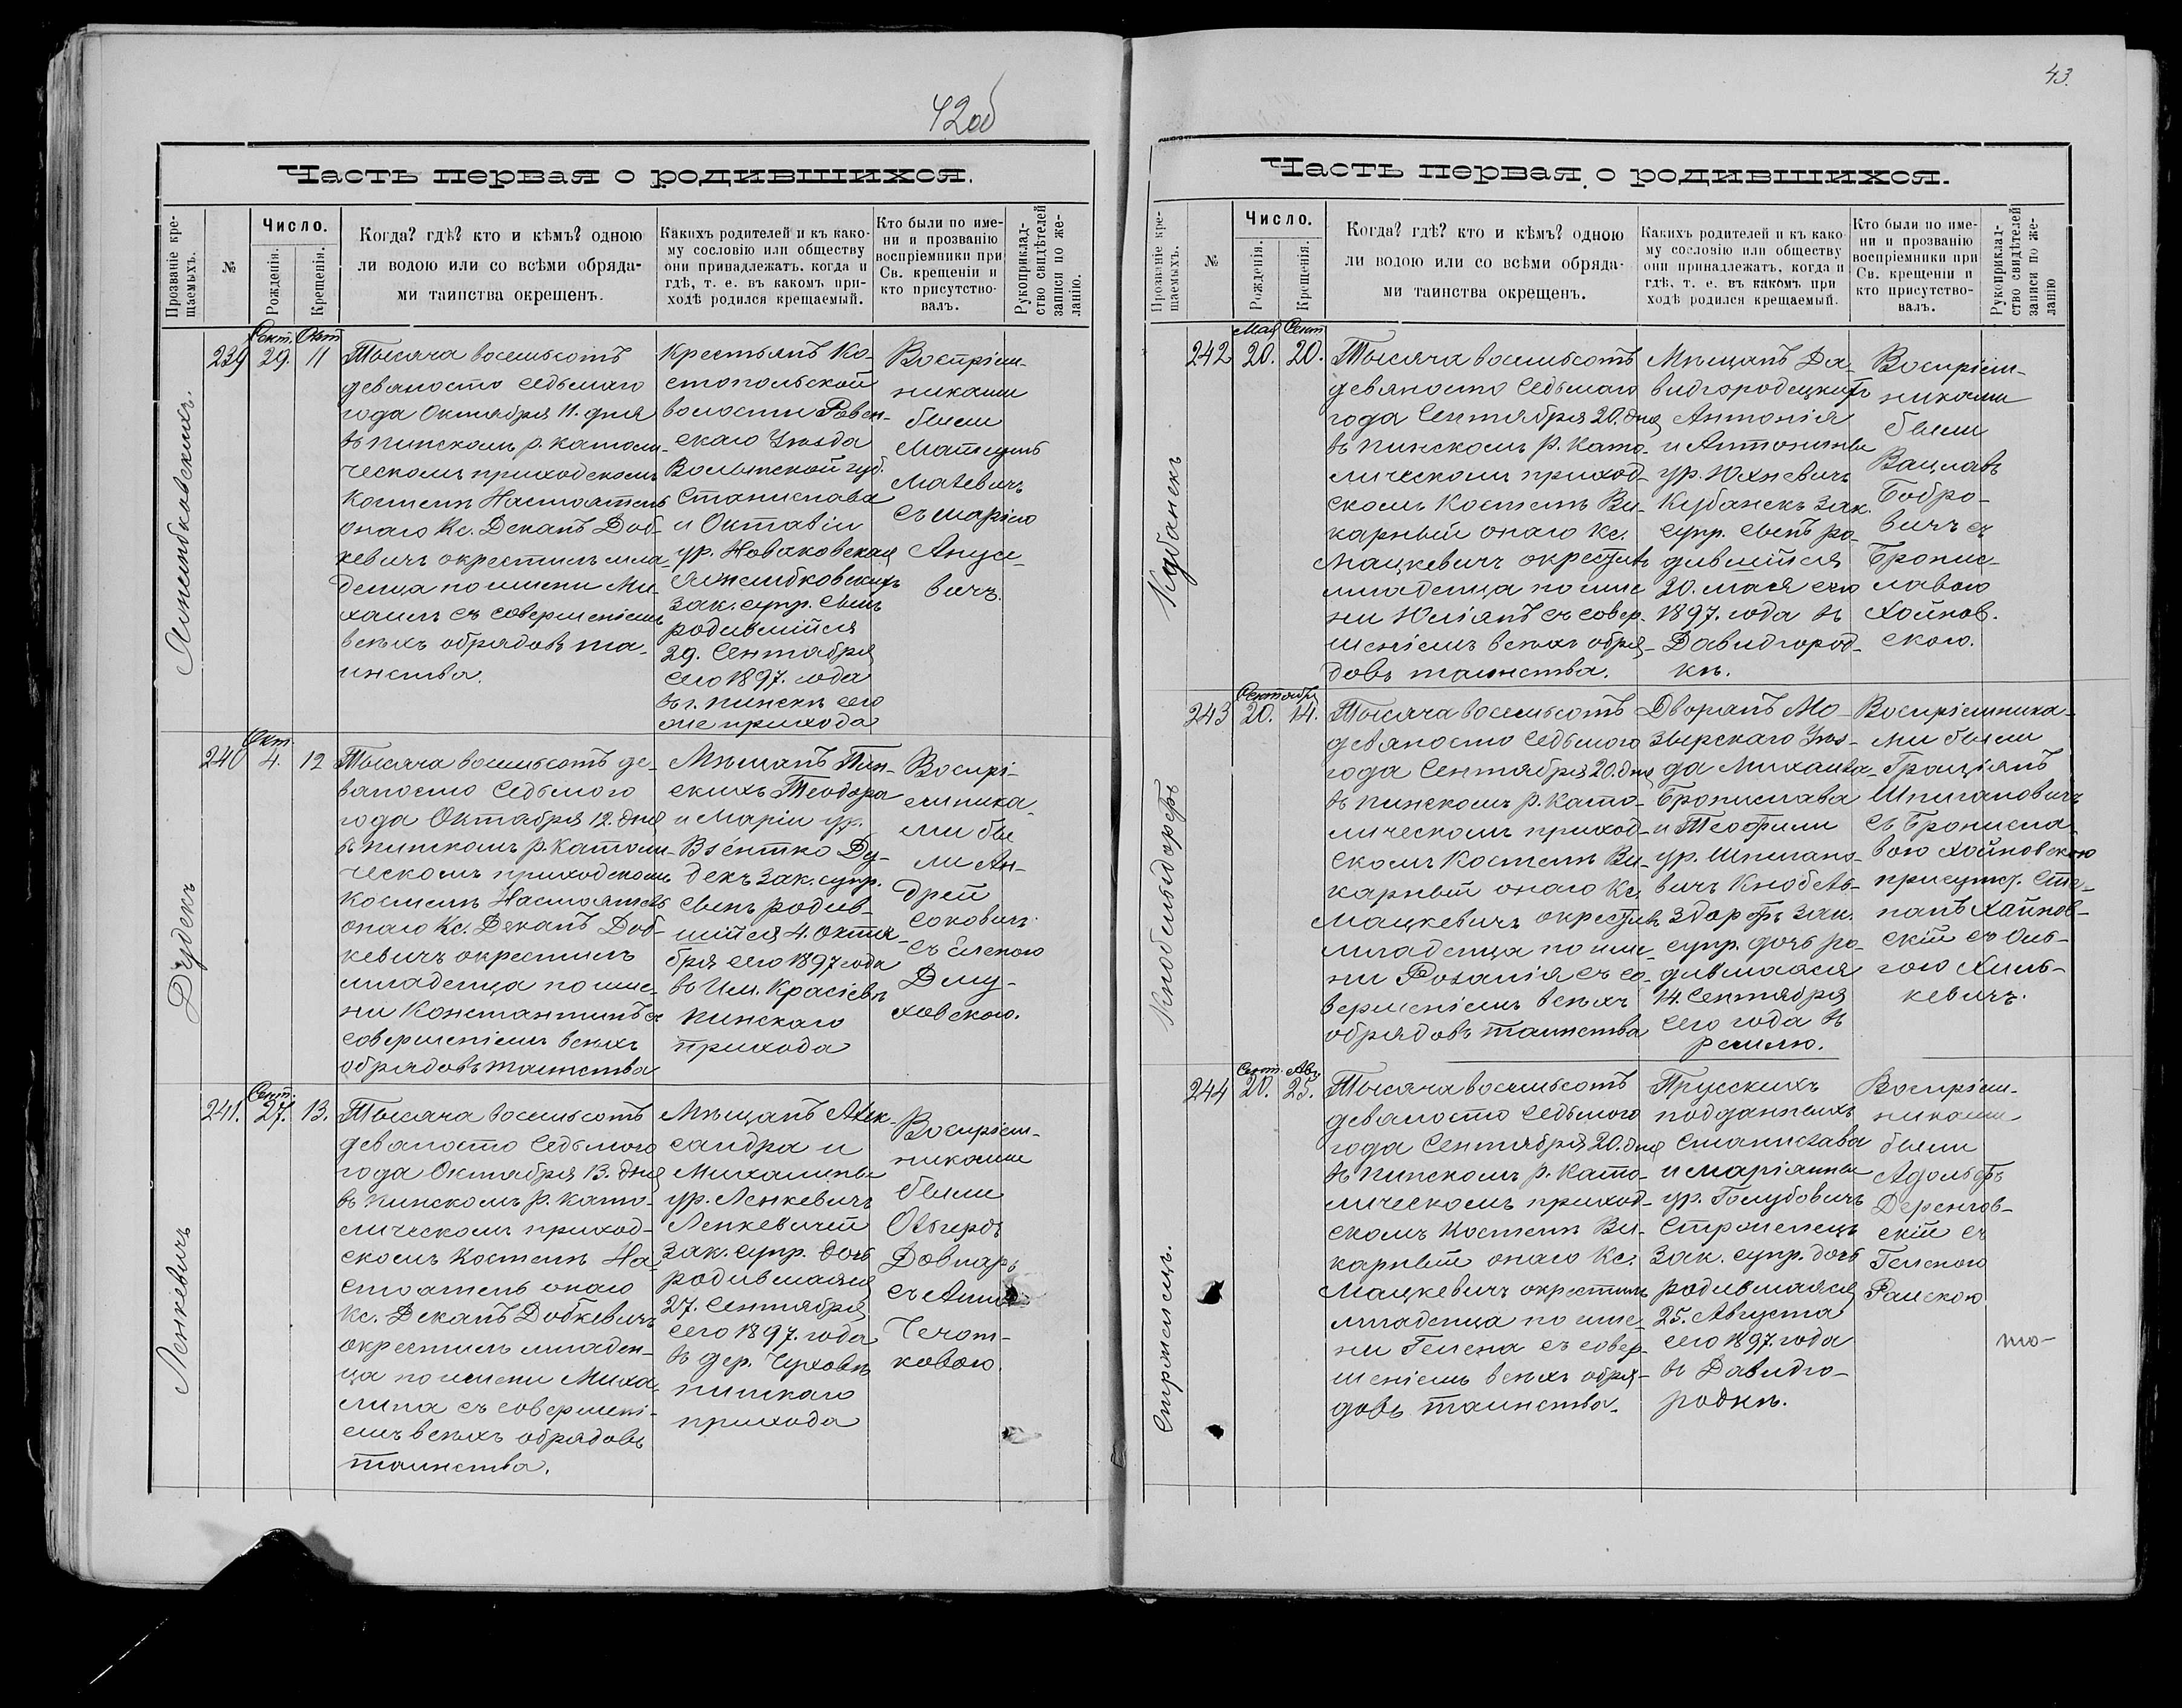 42об
Часть первая о родившихся.
Прозваніе кре-
щаемыхъ.
№
Число.
Рожденія.
Крещенія.
Когда? гдѣ? кто и кѣмъ? одною
ли водою или со всѣми обряда-
ми таинства окрещенъ.
Какихъ родителей и къ како-
му сословію или обществу
они принадлежатъ, когда и
гдѣ, т. е. въ какомъ при-
ходѣ родился крещаемый.
Кто были по име-
ни и прозванію
воспріемники при
Св. крещеніи и
кто присутство-
валъ.
Рукоприклад-
ство свидѣтелей
записи по же-
ланію.
239
Сент.
29.
Окт
11
Тысяча восемьсотъ
девяносто седьмаго
года Октября 11. дня
въ Пинскомъ р. католи-
ческомъ приходскомъ
костелѣ Настоятель
онаго Кс. Деканъ Доб-
кевичъ окрестилъ мла-
денца по имени Ми-
хаилъ съ совершеніемъ
всѣхъ обрядовъ та-
инства.
Крестьянъ Ко-
стопольской
волости Ровен-
скаго Уѣзда
Волынской губ.
Станислава
и Октавіи
ур. Новаковская
зак. супр. сынъ
родившійся
29. Сентября
сего 1897. года
въ г. Пинскѣ сего
же прихода
Воспріем-
никами
были
съ Маріею
Дудекъ
240
Окт.
4.
12
Тысяча восемьсотъ де-
вяносто седьмого
года Октября 12. дня
въ Пинскомъ р. католи-
ческомъ приходскомъ
костелѣ Настоятель
онаго Кс. Деканъ Доб-
кевичъ окрестилъ
младенца по име-
ни Константинъ съ
совершеніемъ всѣхъ
обрядовъ таинства
Мѣщанъ Пин-
скихъ Теодора
и Маріи ур.
Взентко Ду-
декъ зак. супр.
сынъ родив-
шійся 4. Октя-
бря сего 1897 года
въ Им. Красіевѣ
Пинскаго
прихода
Воспрі-
емника-
ми бы-
ли Ан-
дрей
Соковичъ
съ Еленою
Длу-
ховскою.
Ленкевичъ
241.
Сент.
27.
13.
Тысяча восемьсотъ
девяносто седьмого
года Октября 13. дня
въ Пинскомъ р. като-
лическомъ приход-
скомъ костелѣ На-
стоятель онаго
Кс. Деканъ Добкевичъ
окрестилъ младен-
ца по имени Миха-
лина съ совершені-
емъ всѣхъ обрядовъ
таинства.
Мѣщанъ Алек-
сандра и
Михалины
ур. Ленкевичъ
Ленкевичей
зак. супр. дочь
родившаяся
27. Сентября
сего 1897. года
въ дер. Чуховѣ
Пинскаго
прихода
Воспріем-
никами
были
Ольгердъ
Довнаръ
съ
Чечот-
ковою.
43.
Часть первая о родившихся.
Прозваніе кре-
щаемыхъ.
№
Число.
Рожденія.
Крещенія.
Когда? гдѣ? кто и кѣмъ? одною
ли водою или со всѣми обряда-
ми таинства окрещенъ.
Какихъ родителей и къ како-
му сословію или обществу
они принадлежатъ, когда и
гдѣ, т. е. въ какомъ при
ходѣ родился крещаемый.
Кто были по име-
ни и прозванію
воспріемники при
Св. крещеніи и
кто присутство-
валъ.
Рукоприклад-
ство свидѣтелей
записи по же-
ланію
Кубанекъ
242
Мая
20.
Сент
20.
Тысяча восемьсотъ
девяносто седьмаго
года Сентября 20. дня
въ Пинскомъ р. като-
лическомъ приход-
скомъ костелѣ Ви-
карный онаго Кс.
Мацкевичъ окрестилъ
младенца по име
ни Юліянъ съ совер-
шеніемъ всѣхъ обря-
довъ таинства.
Мѣщанъ Да-
видгородецкихъ
Антонія
и Антонины
ур. Юхневичъ
Кубанекъ зак.
супр. сынъ ро-
дившійся
20. мая сего
1897. года въ
Давидгород-
кѣ.
Воспріем-
никами
были
Вацлавъ
Бобро-
вичъ съ
Бронис-
лавою
Хойнов-
скою.
Кнобельсдорфъ
243
Сентября
20.
14.
Тысяча восемьсотъ
девяносто седьмого
года Сентября 20. дня
въ Пинскомъ р. като-
лическомъ приход-
скомъ костелѣ Ви-
карный онаго Кс.
Мацкевичъ окрестилъ
младенца по име-
ни Розалія съ со-
вершеніемъ всѣхъ
обрядовъ таинства
Дворянъ Мо-
зырскаго Уѣз-
да Михаила-
Бронислава
и Теофили
ур. Шпигано-
вичъ Кнобель-
здорфъ зак.
супр. дочь ро-
дившаяся
14. Сентября
сего года въ
Воспріемника-
ми были
Граціянъ
Шпигановичъ
съ Бронисла-
вою Хойновскою
присутст. Сте-
панъ Хойнов-
скій съ Оль-
гою Хиль-
кевичъ.
Строменецъ.
244
Сент.
20.
Авг
25.
Тысяча восемьсотъ
девяносто седьмого
года Сентября 20. дня
въ Пинскомъ р. като-
лическомъ приход-
скомъ костелѣ Ви-
карный онаго Кс.
Мацкевичъ окрестилъ
младенца по име-
ни Гелена съ совер-
шеніемъ всѣхъ обря-
довъ таинства.
Прусскихъ
подданныхъ
Станислава
и Маріянны
ур. Голубовичъ
Строменецъ
зак. супр. дочь
родившаяся
25. Августа
сего 1897. года
въ Давидго-
родкѣ.
Воспріем-
никами
были
Адольфъ
Деренгов-
скій съ
Геленою
Раискою